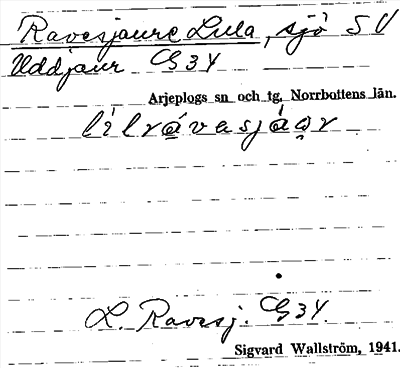 Ravesjaure Lula, sjö SV
Uddjaur C34
Arjeplogs sn och tg, Norrbottens län.
L. Ravesj. C34.
Sigvard Wallström, 1941.